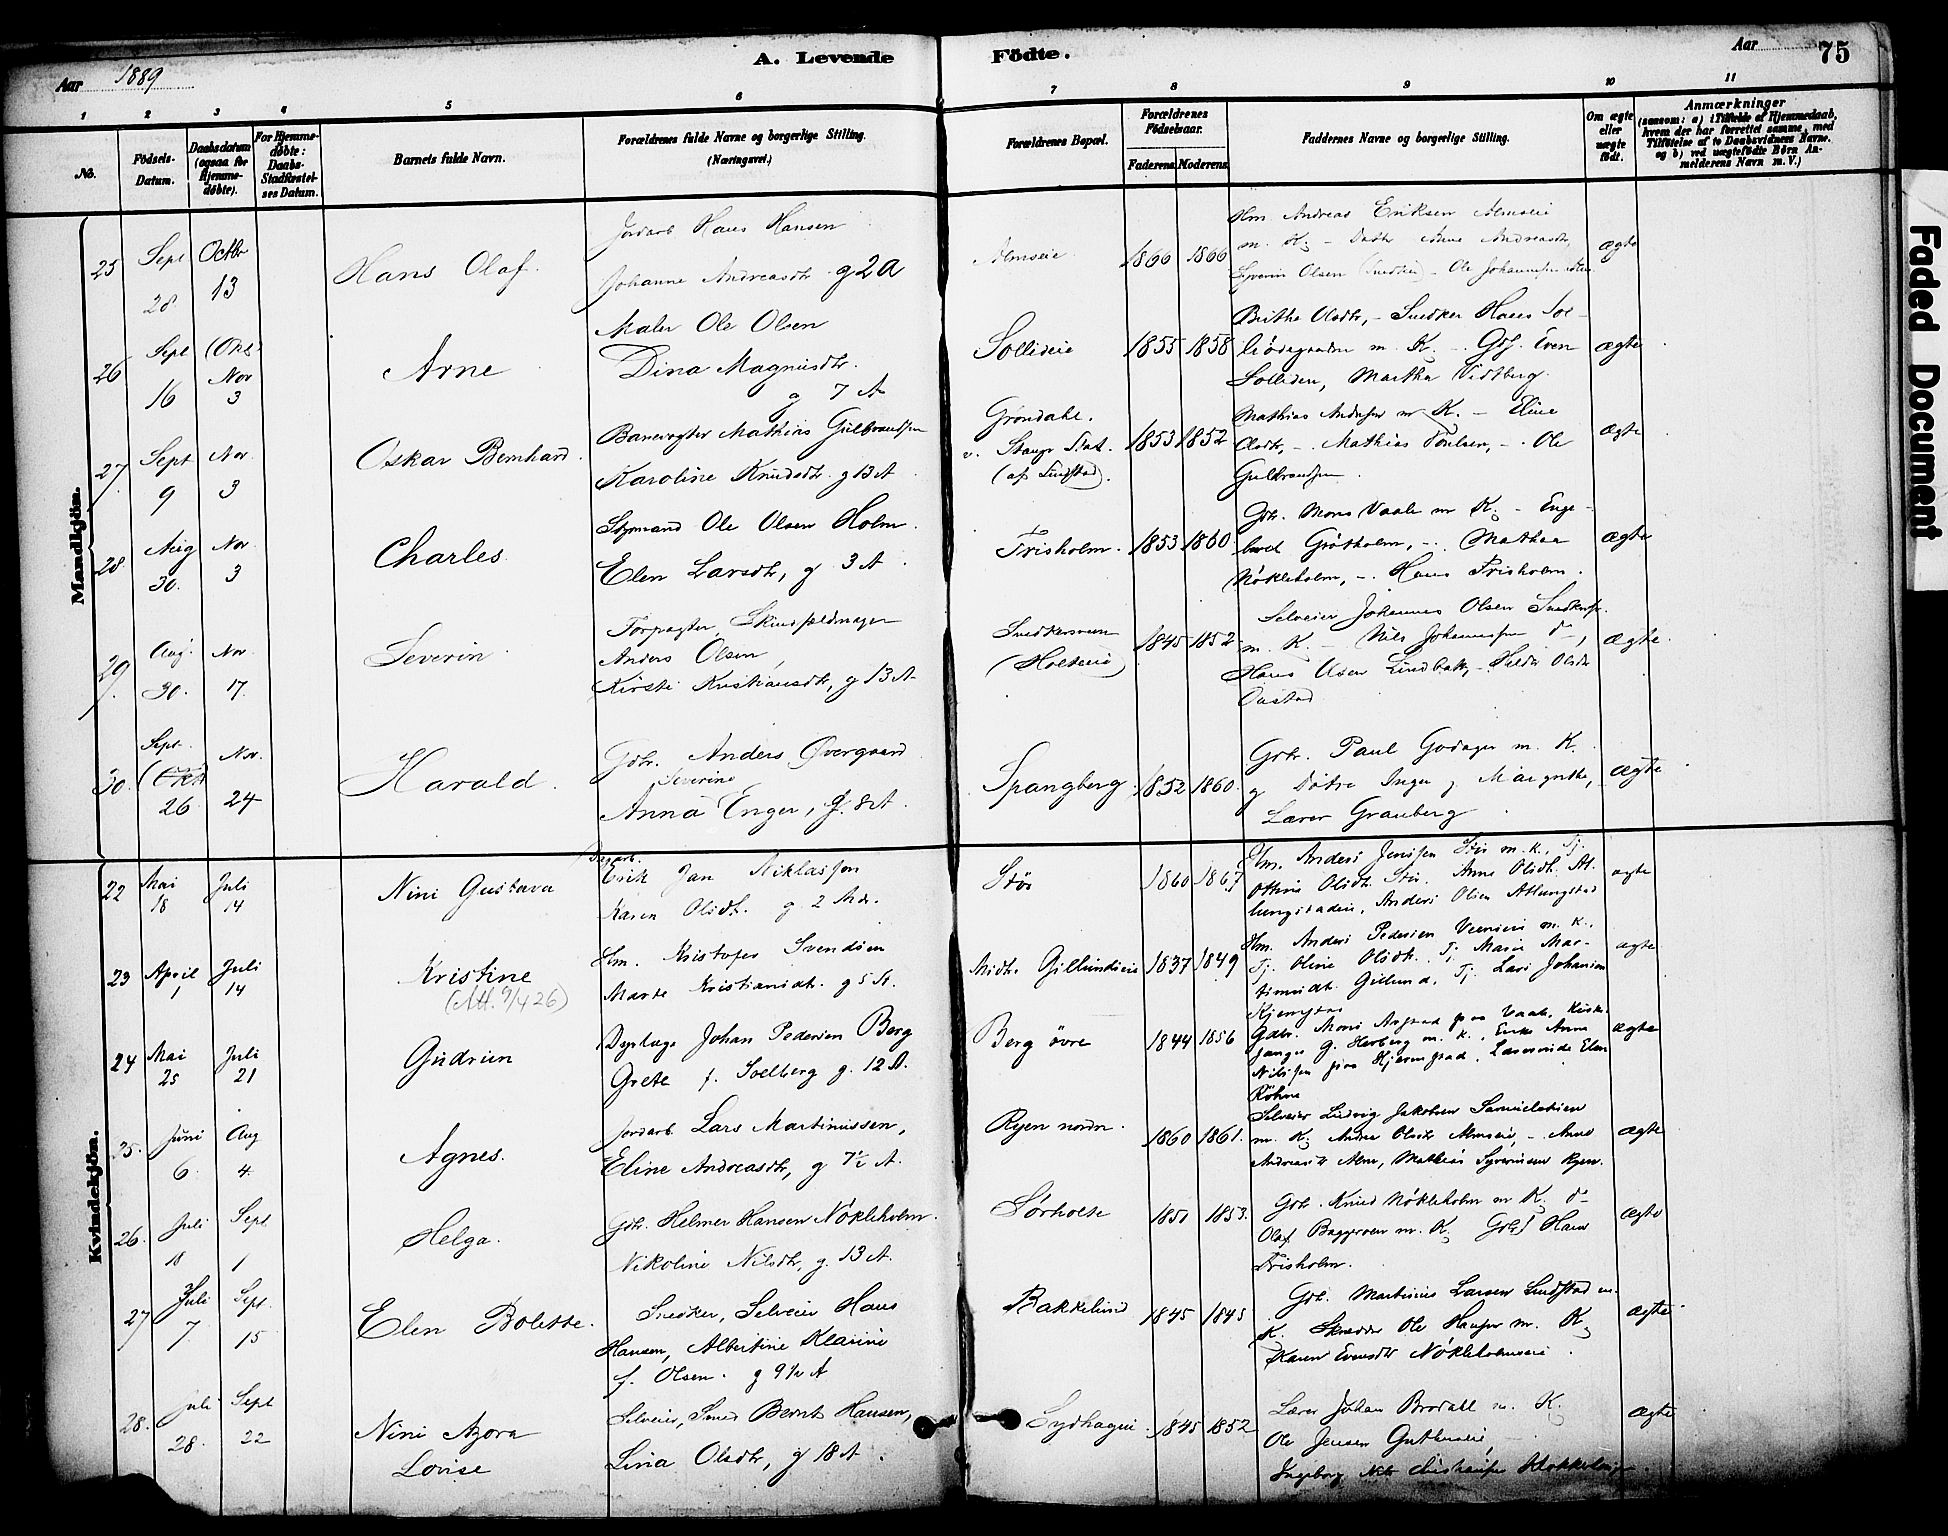 Aar 1889
A. Levende Födte.
Aar
75
1 2 3 4 5 6 7 8 9 10 11
No.
Födsels-Datum.
Daabsdatum (ogsaa for Hjemmedöbte).
For Hjemmedöbte: Daabs-Stadfæstelses Datum.
Barnets fulde Navn.
Forældrenes fulde Navne og borgerlige Stilling. (Næringsvei.)
Forældrenes Bopæl.
Forældrenes Födselsaar.
Faderens. Moderens.
Faddernes Navne og borgerlige Stilling.
Om ægte eller uægte födt.
Anmærkninger
(saasom: a) i Tilfælde af Hjemmedaab, hvem der har forrettet samme, med Tilföielse af to Daabsvidners Navne, og b) ved uægtefödte Börn Anmelderens Navn m. V.)
Mandkjön.
25 Sept 28. Octbr 13
Hans Olaf.
Jordarb Hans Hansen
Johanne Andreasdtr g 2 A
Almseie 1866 1866
Hm Andreas Eriksen Almseie
m. K. – Datter Anne Andreasdtr,
Syverin Olsen – Ole Johannesen
ægte
26 Sept 16 (Okt) Nov 3
Arne
Maler Ole Olsen
Dina Magnusdtr.
g 7 A
Sollieie 1855 1858
Brithe Olsdtr, – Snedker Hans Sol-
m. K. – Gdf. Even
Solliden, Martha Vidtberg.
ægte
27 Sept 9 Nov. 3
Oskar Bernhard.
Banevogter Mathias Gulbrandsen
Karoline Knudsdtr. g 13 A
Grøndahl.
v. Stange Stat.
(af Lindstad).
1853 1852
Mathias Andersen m K. – Eline
Olsdtr, – Mathias Poulsen, – Ole
Gulbrandsen.
ægte
28 Aug 30. Nov. 3
Charles.
Styrmand Ole Olsen Holm.
Elen Larsdtr, g 3 A.
Frisholm. 1853 1860.
Gdr. Mons Vaale m K. – Enge-
bred Grötholm, – Mathea
Nökleholm, – Hans Frisholm.
ægte
29 Aug. 30. Nov. 17.
Severin.
Forpagter, Skindfeldmager
Anders Olsen,
Kirsti Kristiansdtr, g 13 A
Snedkersveen
(Holseie)
1845 1852
Selveier Johannes Olsen
m. K. – Nils Johannesen do,
Hans Olsen Lindbak, – Helde Olsdtr
Oustad
ægte.
30. Sept. (Okt) 26. Nov. 24
Harald.
Gdr. Anders Øvergaard
Severine
Anna Enger, g. 8 A.
Spangberg 1852 1860.
Grbr. Paul Godager m. K.
g Döttre Inger g Margrethe,
Lærer Granberg
ægte
Kvindekjön.
22 Mai 18 Juli 14
Nini Gustava
Dagarb.
Erik Jan Niklassen
Karen Olsdt. g. 2 Mdr.
Stör 1860 1867
Hm. Anders Jensen Stör m. K., Tj.
Othine Olsdt. Stör. Anne Olsdt. At-
lungstadeie, Anders Olsen Atlungstad
ægte
23 April 1 Juli 14
Kristine
(Att. 9/4 26)
Hm. Kristofer Svendsen
Marte Kristiansdt. g 5 A.
Midtr. Gillundseie 1837 1849
Hm. Anders Pedersen Veenseie m. K.,
Tj. Oline Olsdt. Tj. Marie Mar-
tinusdt. Gillund, Tj. Lars Johansen
Kjemstad
ægte
24 Mai 25 Juli 21
Gudrun
Dyrlæge Johan Pedersen Berg
Grete f. Solberg g. 12 A.
Berg övre 1844 1856
Gdbr. Mons Arstad paa Vaale, Kirke-
sanger G. Herberg m. K., Enke Anne
Nilssen paa Hjermstad, Lærerinde Elen
Röhne
ægte
25. Juni 6. Aug 4.
Agnes.
Jordarb. Lars Martinussen,
Eline Andreasdtr, g 7½ A.
Ryen nordr. 1860 1861.
Selveier Ludvig Jakobsen Samuelstuen
m. K. Andrea Olsdtr Almseie, – Anne
Andreasdtr Alm, Mathias Syverinsen Ryen.
ægte
26. Juli 18 Sept. 1
Helga.
Gdr. Helmer Hansen Nökleholm.
Nikoline Nilsdtr, g. 13 A.
Sörholte 1850 1853.
Grbr. Knud Nökleholm m K. do
Olaf Baggeroen m. K. Gdr Hans
Frisholm.
ægte
27 Juli 7 Sept. 15
Elen Bolette.
Snedker, Selveier Hans
Hansen, Albertine Klarine
f. Olsen. g 9½ A
Bakkelund 1845 1845
Gdr. Martinus Larsen Lindstad m.
K. Skrædder Ole Hansen m. K.
Karen Evensdtr Nökleholmseie.
ægte
28. Juli 28. Sept 22
Nini Azora
Lovise
Selveier, Smed Bernt Hansen,
Lina Olsdtr, g 18 A.
Sydhagen. 1845 1852
Lærer Johan Brodahl m. K.
Ole Jensen Guthuseie,
Ingeborg
ægte
Faded Document